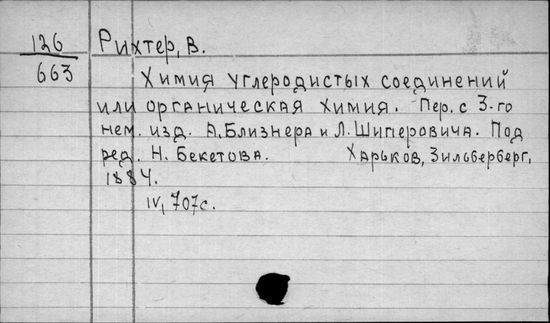 126
663
Рихтер, В.
Химия углеродистых соединений
или органическая химия. Пер. с 3-го
нем. изд. А. Близнера и Л. Шиперовича. Под
ред. Н. Бекетова. Харьков, Зильберберг,
1884.
IV, 707с.